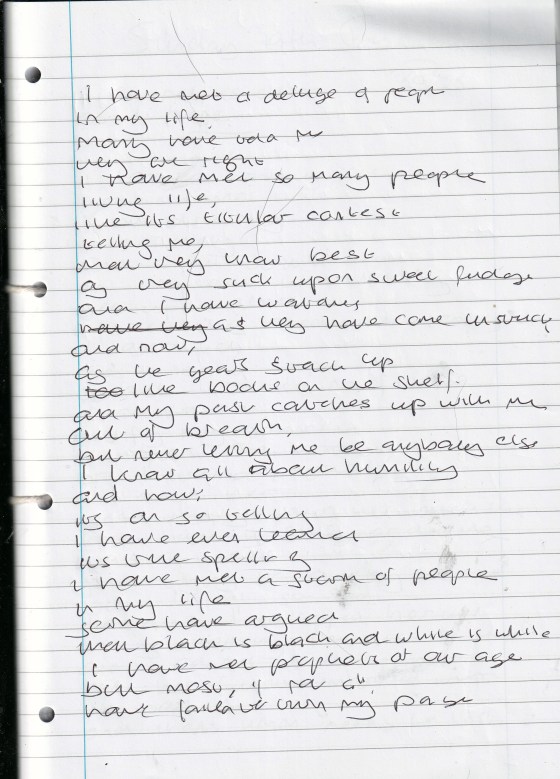 I have met a deluge of people
in my life.
Many have told me
they are right
I have met so many people
living life,
like its titular contest
telling me,
that they know best
as they suck upon sweet fudge
and I have watched
have they as they have come unstuck
and now,
as the years stack up
too like books on the shelf.
and my past catches up with me
out of breath,
but never letting me be anybody else
I know all about humility
and how;
its all so telling
I have ever learnt
its the spelling
I have met a swarm of people
in my life
some have argued
that black is black and white is white
I have met prophets of our age
but most, if not all
have my